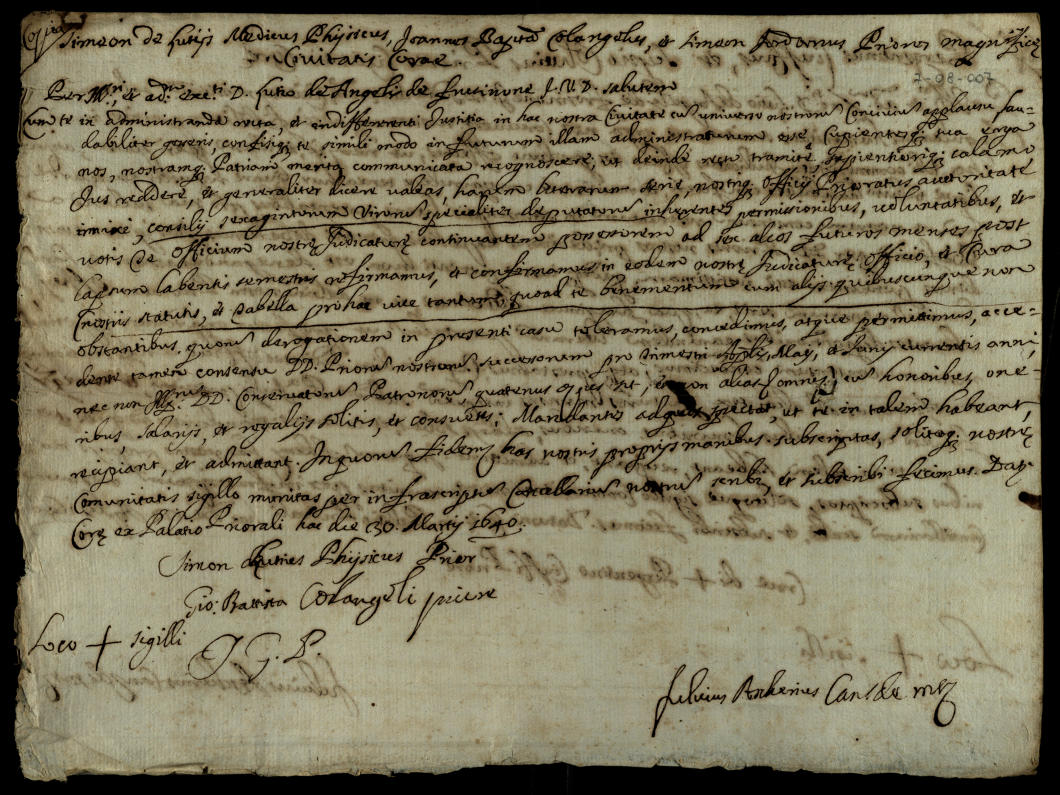 Copia
Simeon de Futijs Medicus Phijsicus, Joannes Bapta Colangelus, et Simeon Priores magnificę
Civitatis Corae.
7-98-007
Per Illri, et adm. exc.ti D. Futio de Angelis de Frusinone J.U.D. salutem
Cum te in administranda recta, et indifferenti Justitia in hac nostra Civitate cum universo nostrorum Civium applausu lau-
dabiliter gesseris, confisiq; te simili modo in futurum illam administraturum esse, Cupientesq; tua erga
nos, nostramq; Patriam merita communicata recognoscere, ut deinde recto tramite, sapientiorig; calamo
Jus reddere, et generaliter dicere valeas, harum literarum serie, nostriq; officij Prioratus auctoritate
consilij sexagintorum Virorum specialiter deputatorum permissionibus, voluntatibus, et
votis te Officium nostrę Judicaturę continuantem possessorem ad sex alios futuros menses post
lapsum labentis semestris refirmamus, et confirmamus in eodem nostrę Judicaturę Officio, et Cura
nostris statutis, et Tabella pro hac vice tantum, quoad te benemeritum cum alijs quibuscunque non
obstantibus, quorum derogationem in presenti casu toleramus, concedimus, atque permittimus, acce-
dente tamen consensu DD. Priorum nostrorum successorum pro trimestri Aprilis, Maij, et Junij currentis anni,
nec non Illmorum DD. Conservatorum Patronorum, quatenus opus sit, et non alias, omnes, cum honoribus, one-
ribus, salarijs, et regalijs solitis, et consuetis; Mandantes ad quos spectat, ut te in talem habeant,
recipiant, et admittant. In quorum Fidem has nostris proprijs manibus subscriptas, solitoq; nostrę
Comunitatis sigillo munitas per infrascriptum Cancellarium nostrum scribi, et subscribi fecimus. Dat.
Corę ex Palatio Priorali hac die 30. Martij 1640.
Simon Phijsicus Prior
Gio: Battista Colangeli priore
Loco + Sigilli
J G. P.
Julius Canc.